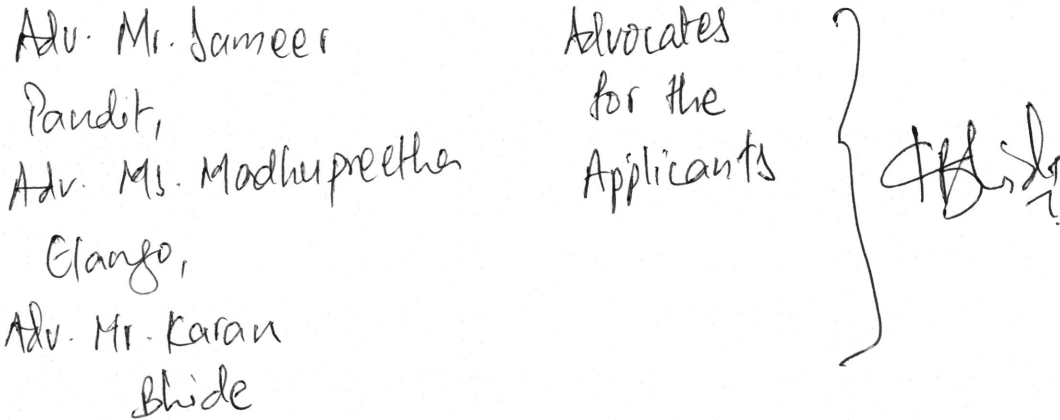 Adv. Mr. Sameer
Pandit,
Adv. Ms. Madhupreetha
Elango,
Adv. Mr. Karan
Bhide
Advocates
for the
Applicants